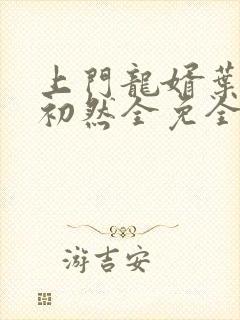 上門龍婿葉
初然全免全
游吉安